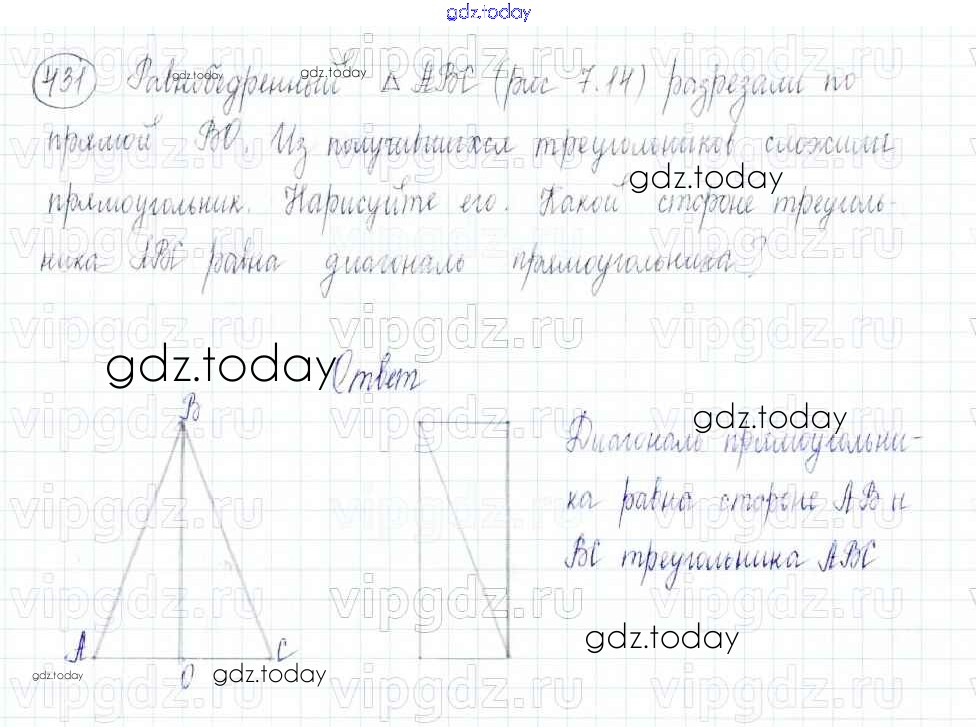 gdz.today
431 Равнобедренный △ ABC (рис 7.14) разрезали по
прямой BO. Из получившихся треугольников сложили
прямоугольник. Нарисуйте его. Какой стороне треуголь-
ника ABC равна диагональ прямоугольника?
Ответ
B
A
O
C
Диагональ прямоугольни-
ка равна стороне AB и
BC треугольника ABC
gdz.today
gdz.today
gdz.today
gdz.today
gdz.today
gdz.today
gdz.today
gdz.today
vipgdz.ru